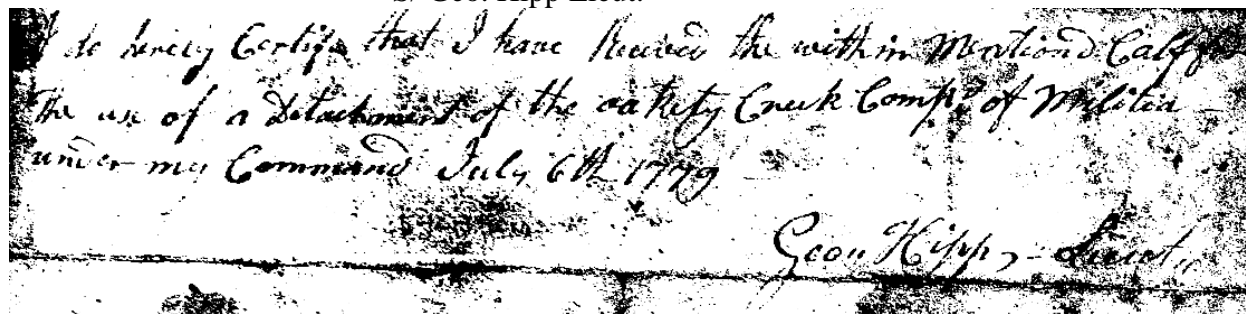 S/ Geo. Hipp Lieut.
I do hereby Certify that I have Received the within Mentiond Calf for
the use of a Detachment of the oakety Creek Comp.y of Militia
under my Command July 6th 1779
Geo,, Hipp, Lieut,,